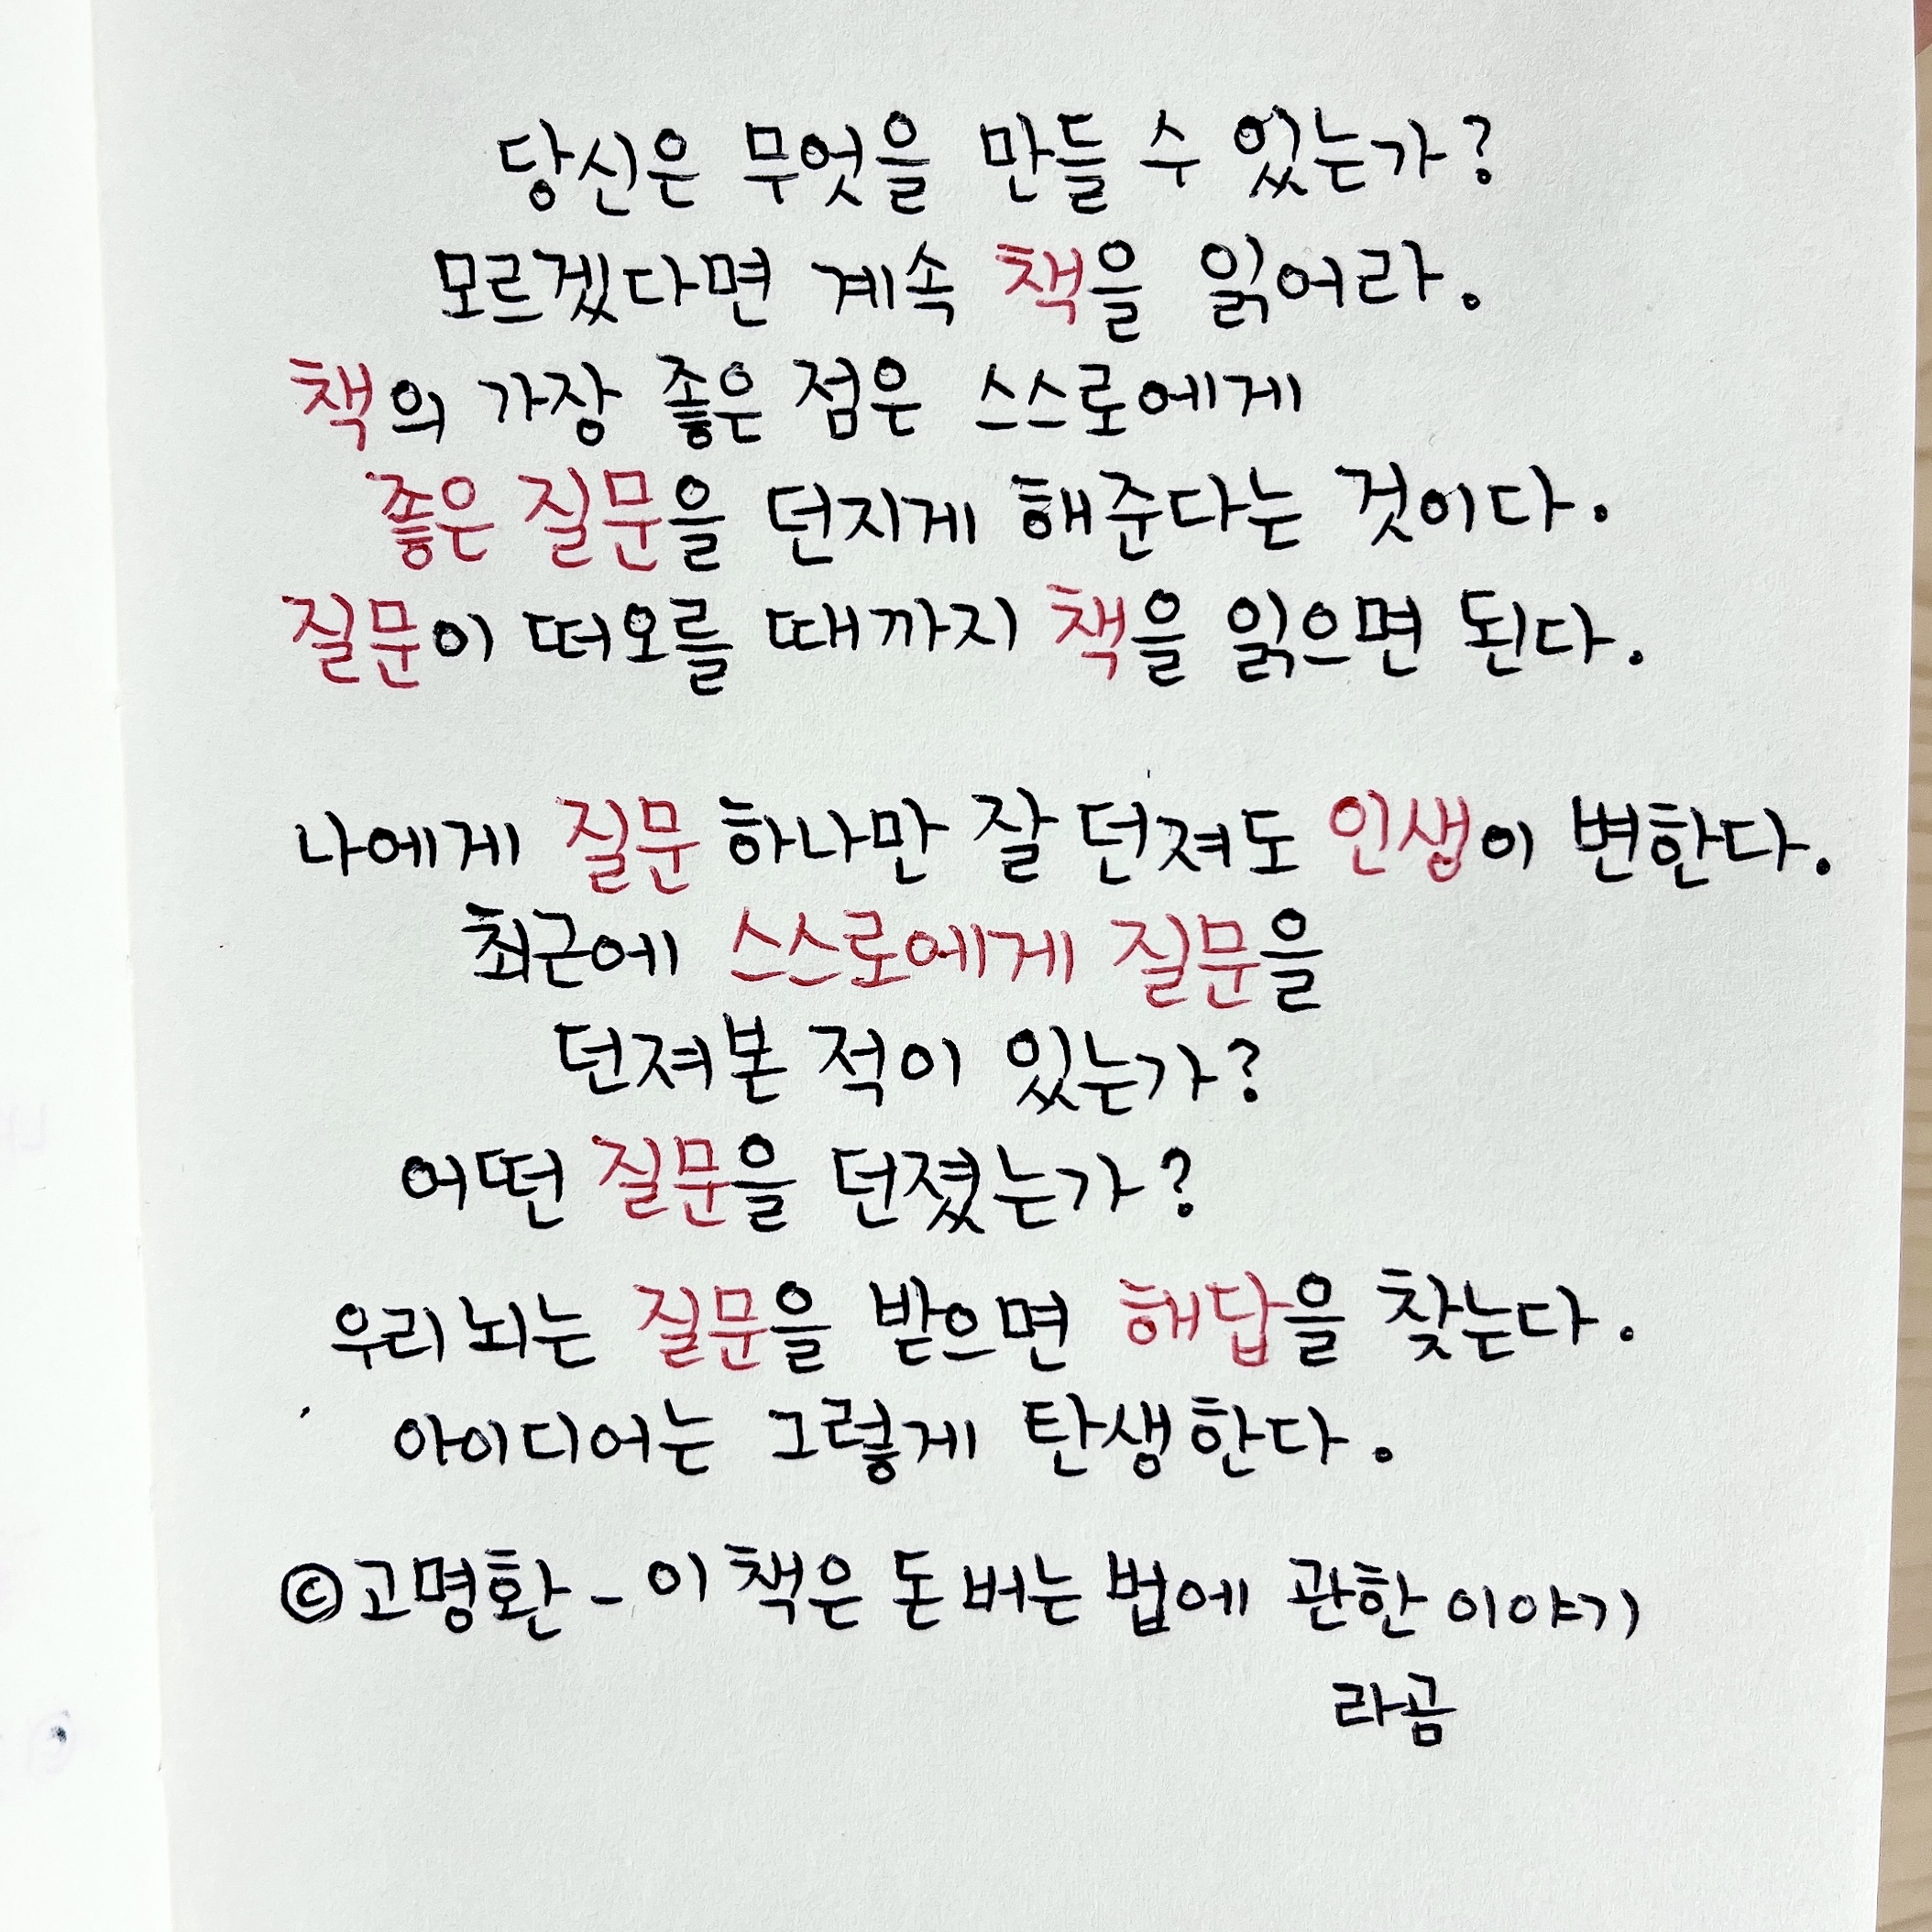 당신은 무엇을 만들 수 있는가?
모르겠다면 계속 책을 읽어라.
책의 가장 좋은 점은 스스로에게
좋은 질문을 던지게 해준다는 것이다.
질문이 떠오를 때까지 책을 읽으면 된다.
나에게 질문 하나만 잘 던져도 인생이 변한다.
최근에 스스로에게 질문을
던져본 적이 있는가?
어떤 질문을 던졌는가?
우리 뇌는 질문을 받으면 해답을 찾는다.
아이디어는 그렇게 탄생한다.
©고명환 - 이 책은 돈 버는 법에 관한 이야기
라곰